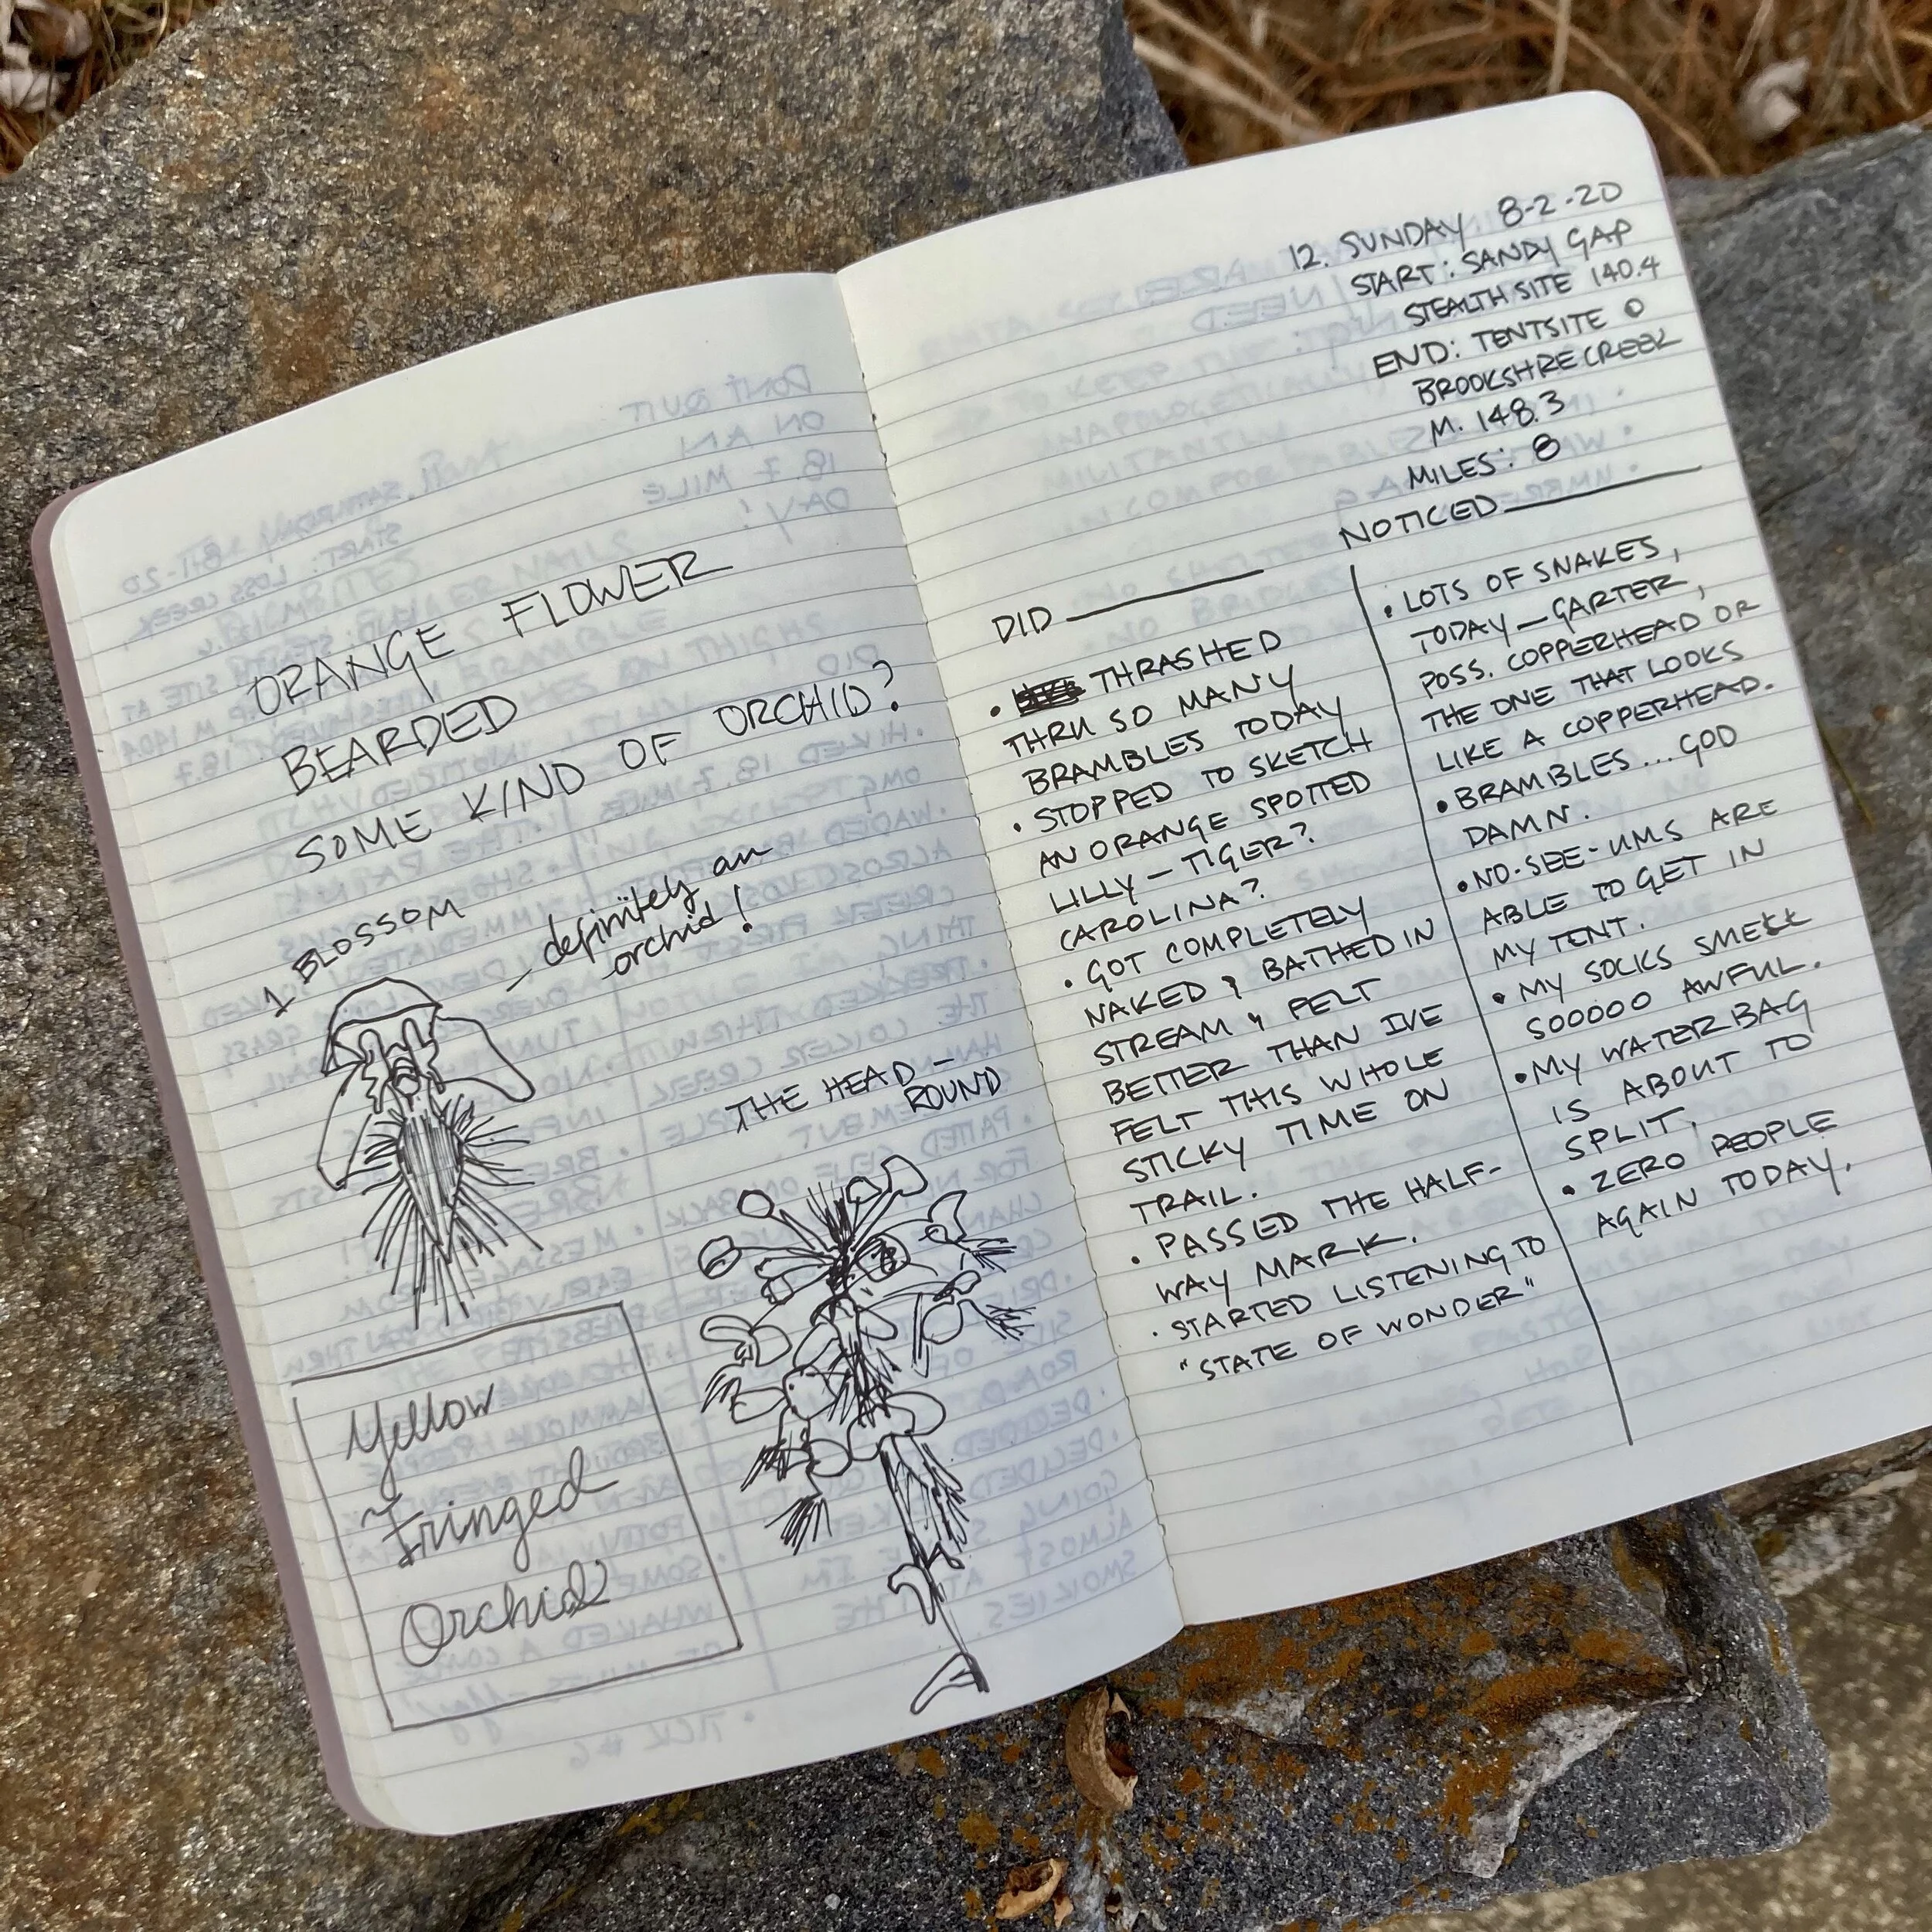 ORANGE FLOWER
BEARDED
SOME KIND OF ORCHID?
1 BLOSSOM
— definitely an
orchid!
THE HEAD —
ROUND
Yellow
Fringed
Orchid
12. SUNDAY 8-2-20
START: SANDY GAP
STEALTH SITE 140.4
END: TENTSITE @
BROOKSHIRE CREEK
M. 148.3
MILES: 8
DID
• THRASHED
THRU SO MANY
BRAMBLES TODAY
• STOPPED TO SKETCH
AN ORANGE SPOTTED
LILLY — TIGER?
CAROLINA?
• GOT COMPLETELY
NAKED & BATHED IN
STREAM & FELT
BETTER THAN IVE
FELT THIS WHOLE
STICKY TIME ON
TRAIL.
• PASSED THE HALF-
WAY MARK.
• STARTED LISTENING TO
"STATE OF WONDER"
NOTICED
• LOTS OF SNAKES,
TODAY — GARTER,
POSS. COPPERHEAD OR
THE ONE THAT LOOKS
LIKE A COPPERHEAD.
• BRAMBLES ... GOD
DAMN.
• NO-SEE-UMS ARE
ABLE TO GET IN
MY TENT.
• MY SOCKS SMELL
SOOOO AWFUL.
• MY WATER BAG
IS ABOUT TO
SPLIT.
• ZERO PEOPLE
AGAIN TODAY.